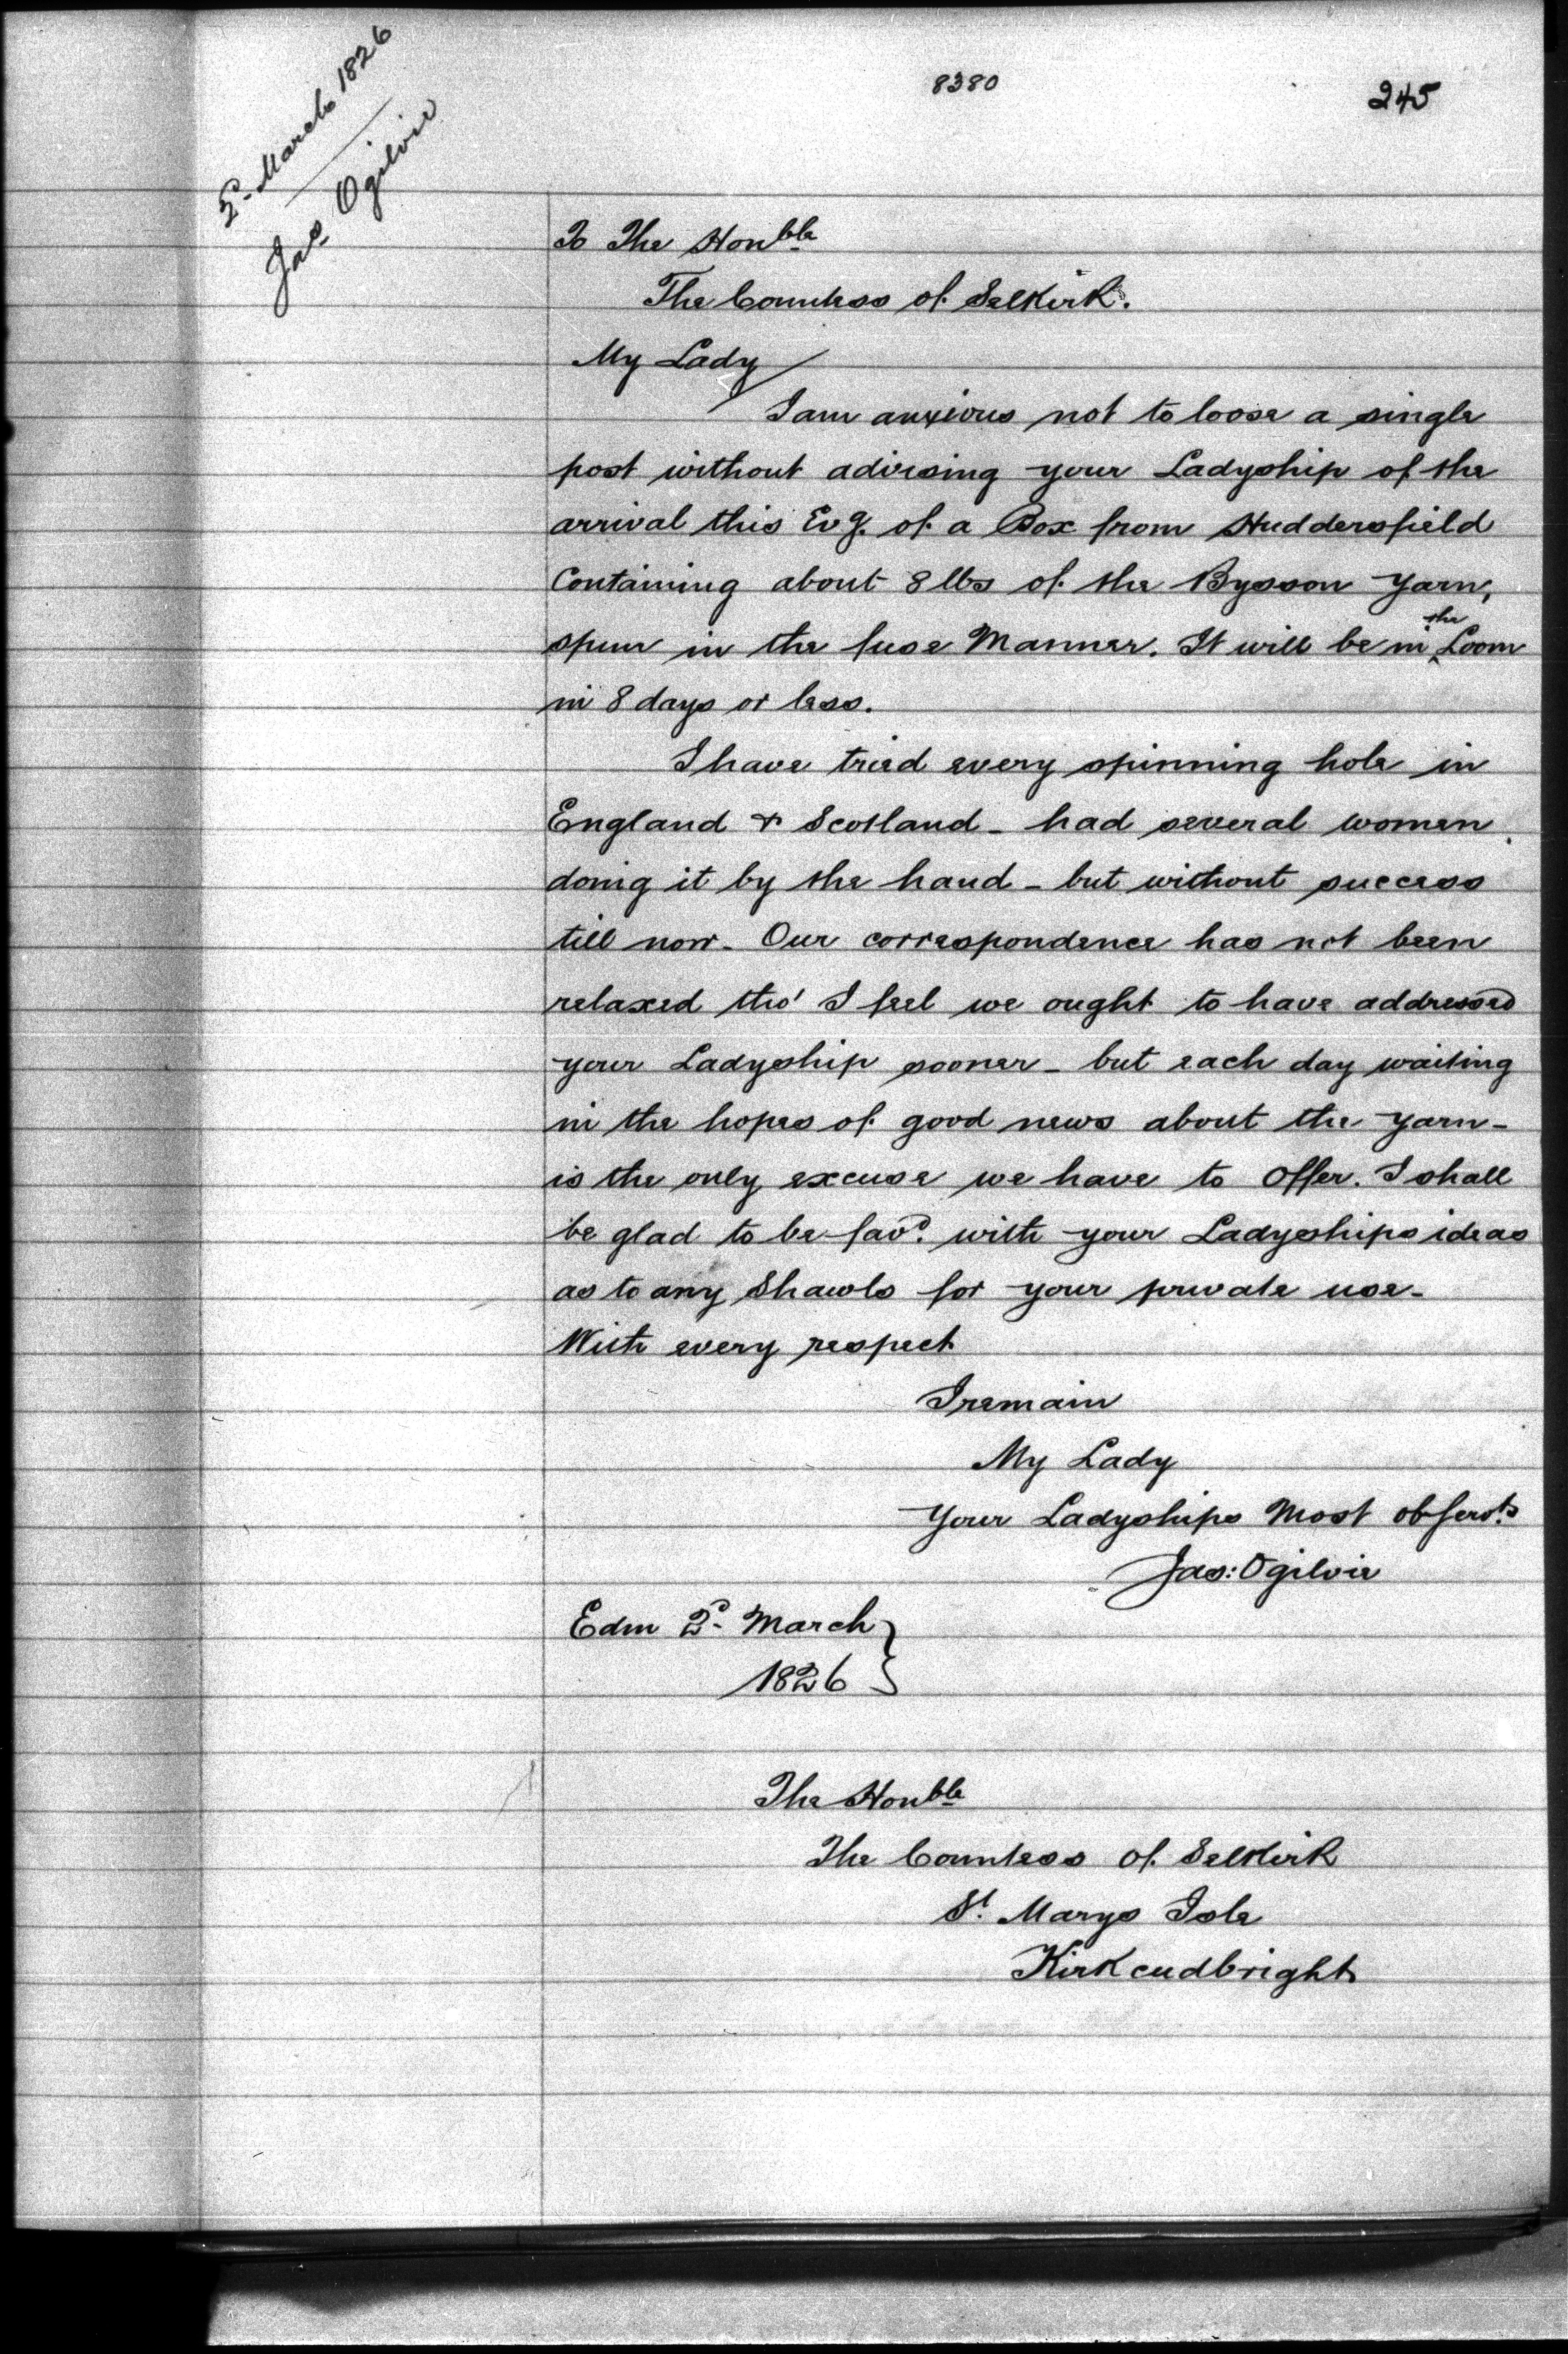 8380
245
2d March 1826
Jas Ogilvie
To The Honble
The Countess of Selkirk.
My Lady
I am anxious not to loose a single
post without advising your Ladyship of the
arrival this Evg. of a Box from Huddersfield
Containing about 8 lbs of the Bysson Yarn,
spun in the fuse Manner. It will be in the Loom
in 8 days or less.
I have tried every spinning hole in
England & Scotland - had several women
doing it by the hand - but without success
till now - Our correspondence has not been
relaxed tho' I feel we ought to have addressed
your Ladyship sooner - but each day waiting
in the hopes of good news about the yarn -
is the only excuse we have to offer. I shall
be glad to be favd. with your Ladyships ideas
as to any Shawls for your private use -
With every respect
I remain
My Lady
Your Ladyships Most ob servt.
Jas: Ogilvie
Edin 2d March
1826
The Honble
The Countess of Selkirk
St. Marys Isle
Kirkcudbright